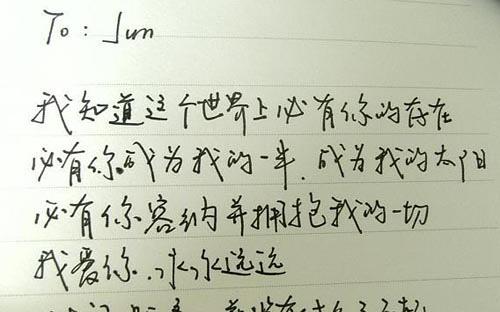 To: Jun
我知道这个世界上必有你的存在
必有你成为我的一半.成为我的太阳
必有你容纳并拥抱我的一切
我爱你.永永远远